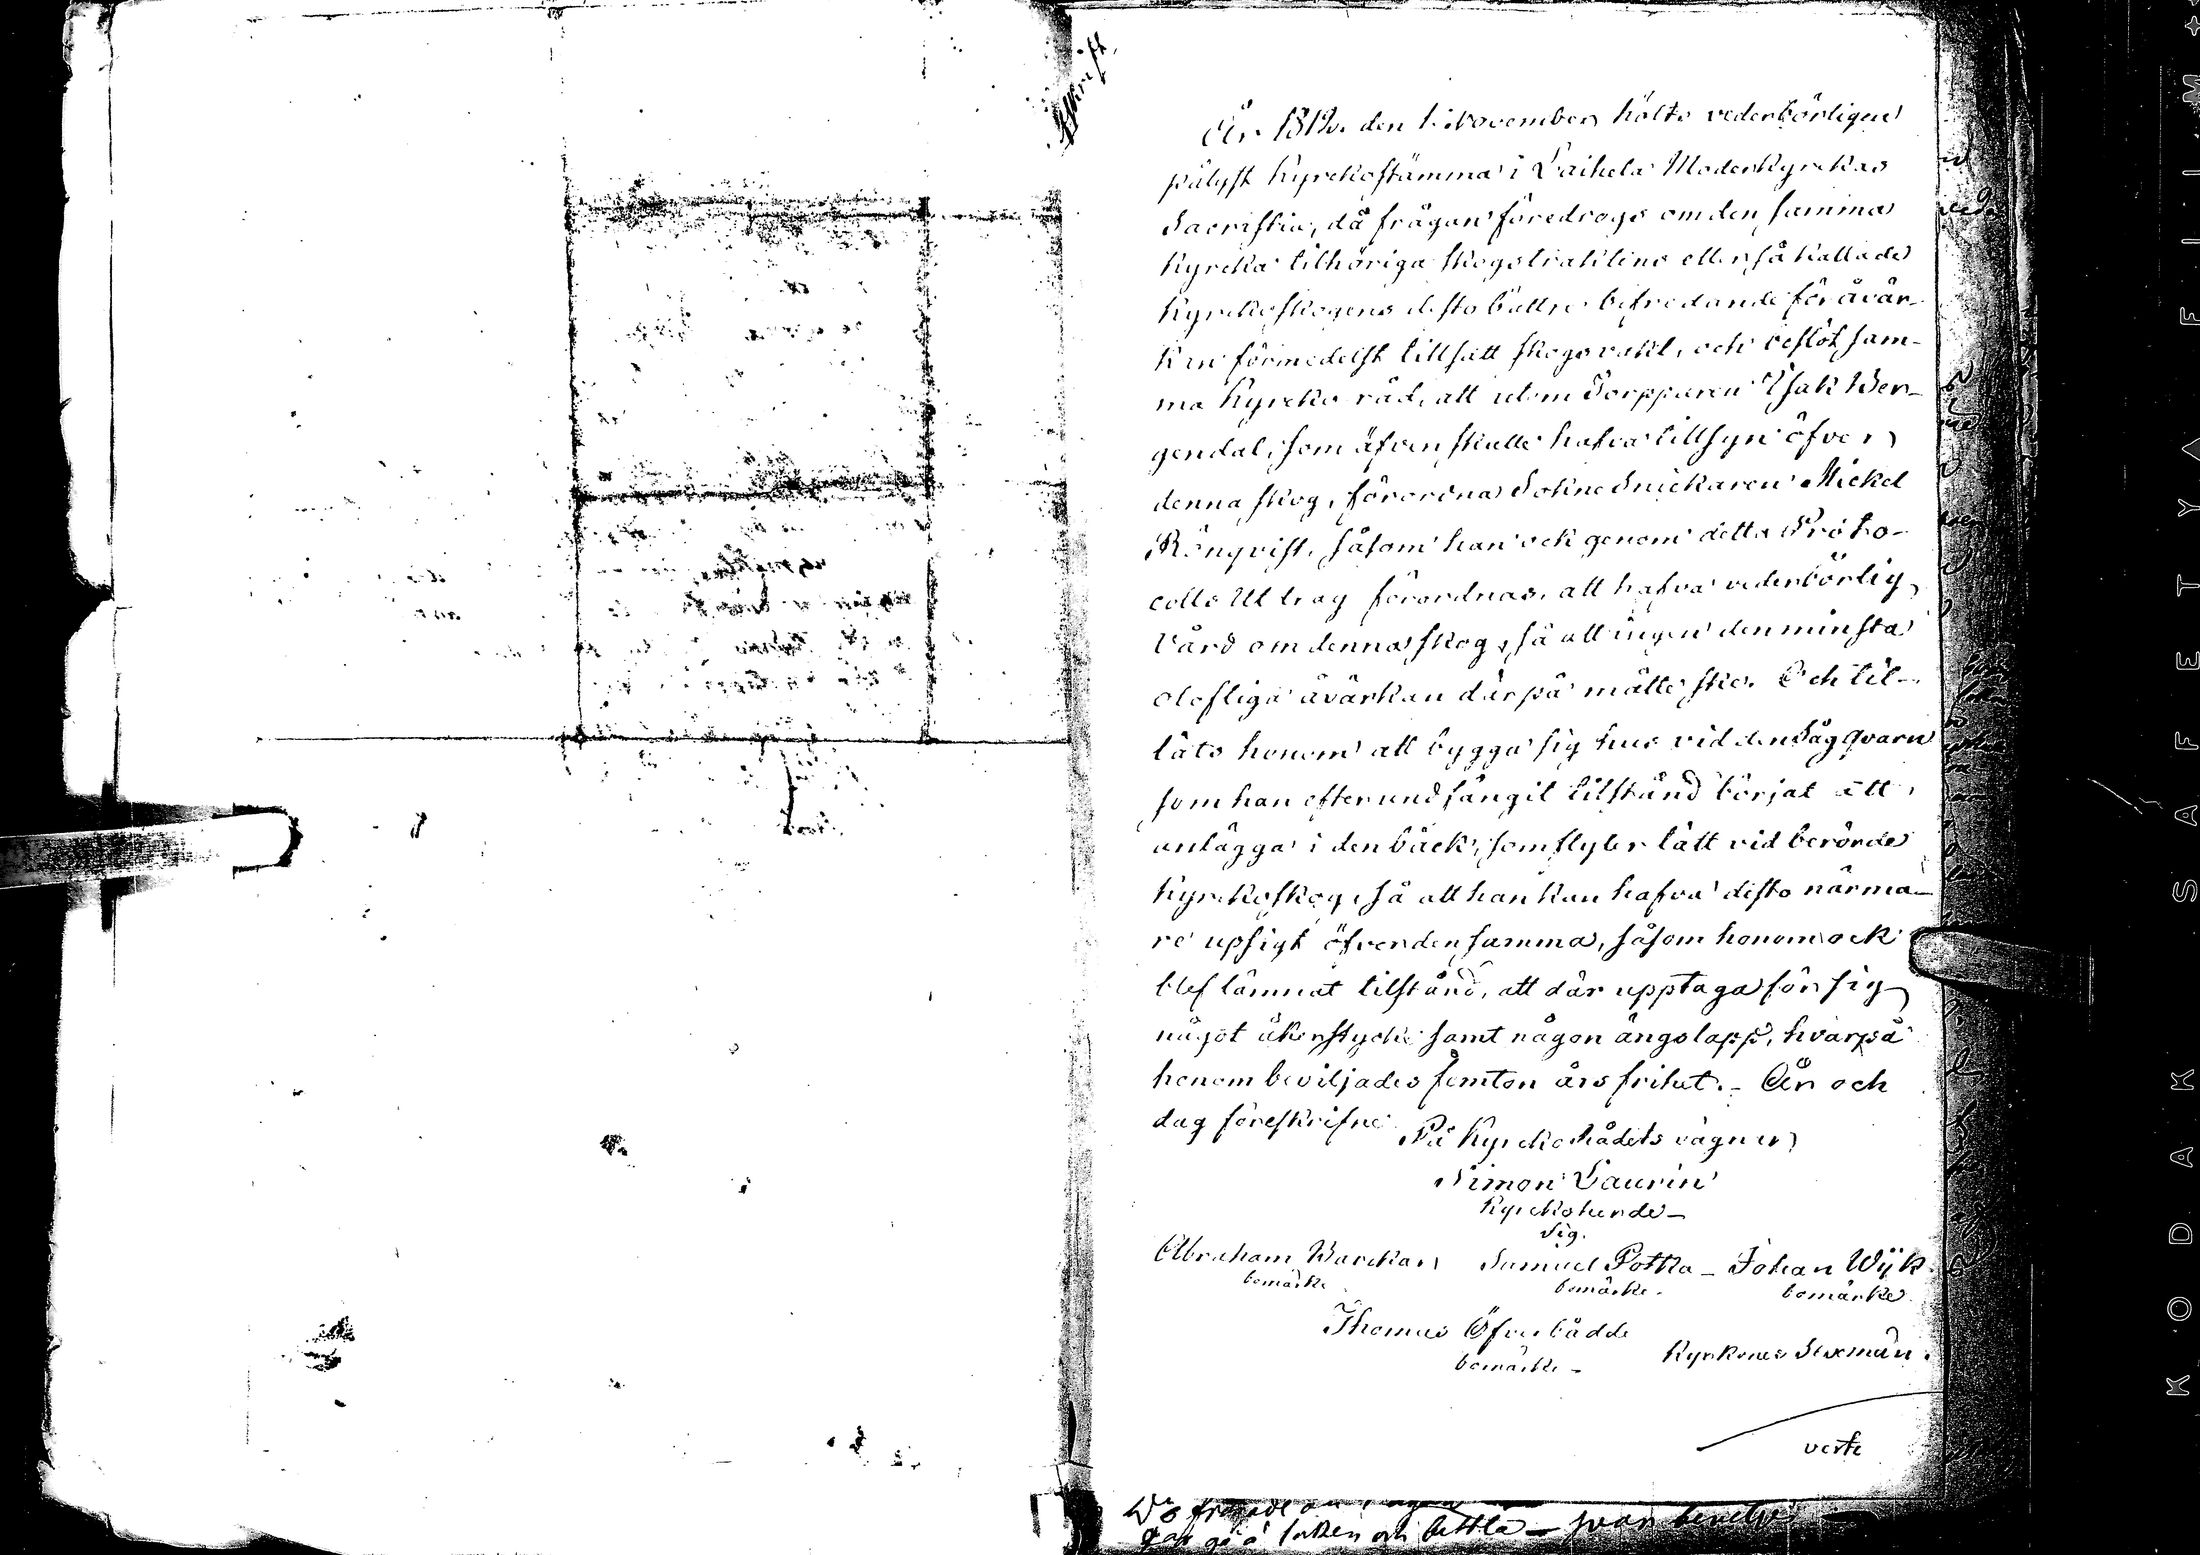 Afskrift.
År 1812. den 1. November hölts vederbörligen
pålyst Kyrckostämma i Laihela Moderkyrckas
Sacristia, då frågan föredrogs om den samma
Kyrcka tilhöriga skogstracktens eller så kallade
Kyrckoskogens desto bättre befredande för åvär-
kan förmedelst tillsatt skogsvakt, och beslöt sam-
ma Kyrcko råd, att utom Torpparen Isak Wer-
gendal, som äfven skulle hafva tillsyn öfver
denna skog, förordna Sokne Snickaren Mickel
Rönqvist, såsom han ock genom detta Proto-
colls Utdrag förordnas, att hafva vederbörlig
vård om denna skog, så att ingen den minsta
olofliga åvärkan därpå måtte ske. Och til-
läts honom att bygga sig hus vid den Sågqvarn
som han efter undfångit tilstånd börjat att
anlägga i den bäck, som flyter tätt vid berörde
Kyrckoskog, så att han kan hafva desto närma-
re upsigt öfver den samma, såsom honom ock
blef lämnat tilstånd, att där upptaga för sig
något åkerstycke samt någon ängslapp, hvarpå
honom beviljades femton års frihet. - År och
dag föreskrifne
På KyrckoRådets vägner
Simon Laurin
Kyrckoherde -
Sig.
Abraham Warckar Samuel Potka - Johan Wijk
bomärke bomärke. bomärke.
Thomas Öfverbådde
bomärke -
Kyrkones Sexmän.
verte
och bettla - svar
KODAK SAFETY FILM